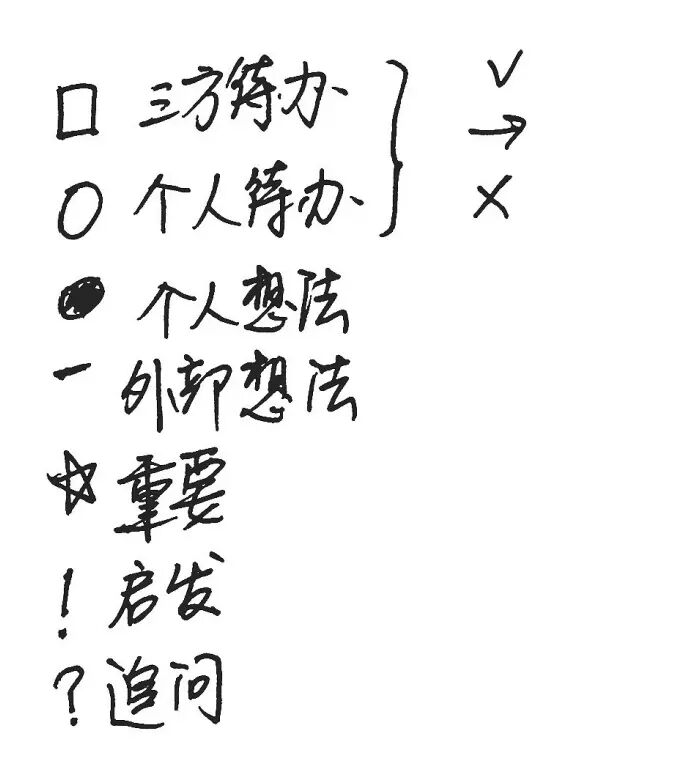 □ 三方待办 √
→
○ 个人待办 ×
● 个人想法
- 外部想法
☆ 重要
! 启发
? 追问